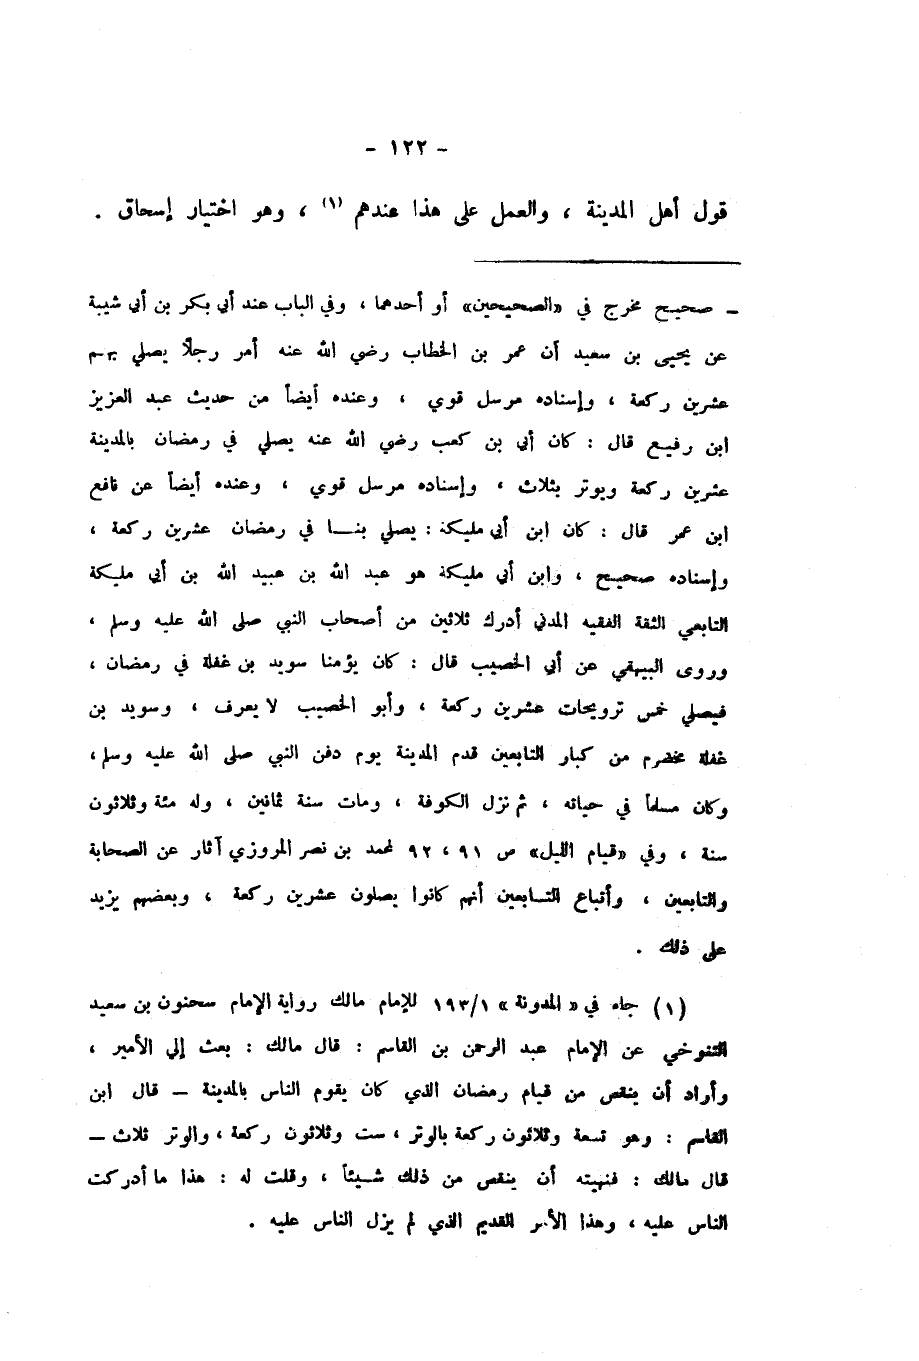 - ١٢٢ -
قول أهل المدينة ، والعمل على هذا عندهم (١) ، وهو اختيار إسحاق .
ـ صحيح مخرج في «الصحيحين» أو أحدهما ، وفي الباب عند أبي بكر بن أبي شيبة
عن يحيى بن سعيد أن عمر بن الخطاب رضي الله عنه أمر رجلاً يصلي بهم
عشرين ركعة ، وإسناده مرسل قوي ، وعنده أيضاً من حديث عبد العزيز
ابن رفيع قال : كان أبي بن كعب رضي الله عنه يصلي في رمضان بالمدينة
عشرين ركعة ويوتر بثلاث ، وإسناده مرسل قوي ، وعنده أيضاً عن نافع
ابن عمر قال : كان ابن أبي مليكة : يصلي بنـــا في رمضان عشرين ركعة ،
وإسناده صحيح ، وابن أبي مليكة هو عبد الله بن عبيد الله بن أبي مليكة
التابعي الثقة الفقيه المدني أدرك ثلاثين من أصحاب النبي صلى الله عليه وسلم ،
وروى البيهقي عن أبي الخصيب قال : كان يؤمنا سويد بن غفلة في رمضان ،
فيصلي خمس ترويحات عشرين ركعة ، وأبو الخصيب لا يعرف ، وسويد بن
غفلة مخضرم من كبار التابعين قدم المدينة يوم دفن النبي صلى الله عليه وسلم ،
وكان مسلماً في حياته ، ثم نزل الكوفة ، ومات سنة ثمانين ، وله مئة وثلاثون
سنة ، وفي «قيام الليل» ص ٩١ ، ٩٢ لمحمد بن نصر المروزي آثار عن الصحابة
والتابعين ، وأتباع التـابعين أنهم كانوا يصلون عشرين ركعة ، وبعضهم يزيد
على ذلك .
(١) جاء في « المدونة » ١٩٣/١ للإمام مالك رواية الإمام سحنون بن سعيد
التنوخي عن الإمام عبد الرحمن بن القاسم : قال مالك : بعث إلي الأمير ،
وأراد أن ينقص من قيام رمضان الذي كان يقوم الناس بالمدينة – قال ابن
القاسم : وهو تسعة وثلاثون ركعة بالوتر ، ست وثلاثون ركعة ، والوتر ثلاث –
قال مالك : فنهيته أن ينقص من ذلك شـيئاً ، وقلت له : هذا ما أدركت
الناس عليه ، وهذا الأمر القديم الذي لم يزل الناس عليه .